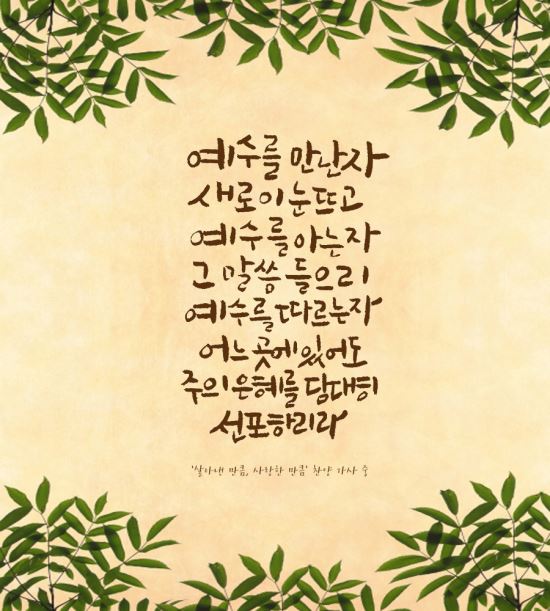 예수를 만난자
새로이 눈뜨고
예수를 아는자
그 말씀 들으리
예수를 따르는자
어느 곳에 있어도
주의 은혜를 담대히
선포하리라
'살아낸 만큼, 사랑한 만큼' 찬양 가사 중